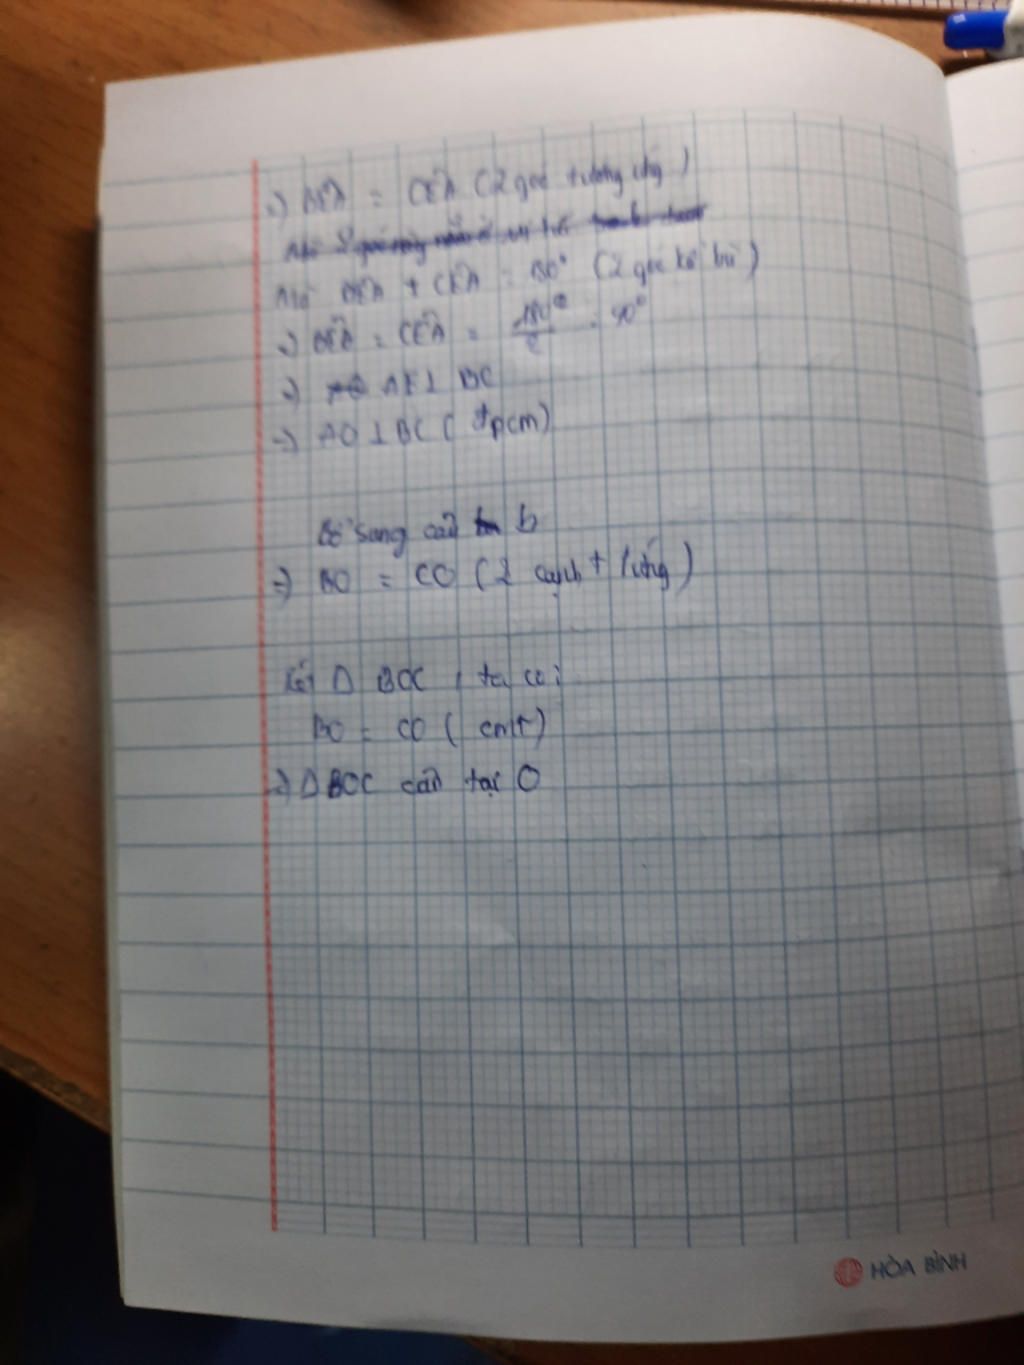 => BÊA = CÊA (2 góc tương ứng)
Mà BÊA + CÊA = 180° (2 góc kề bù)
=> BÊA = CÊA = 180°/2 = 90°
=> AE ⊥ BC
=> AO ⊥ BC (đpcm)
Bổ sung câu b
=> BO = CO (2 cạnh t/ứng)
Xét Δ BOC, ta có:
BO = CO (cmt)
=> Δ BOC cân tại O
HÒA BÌNH